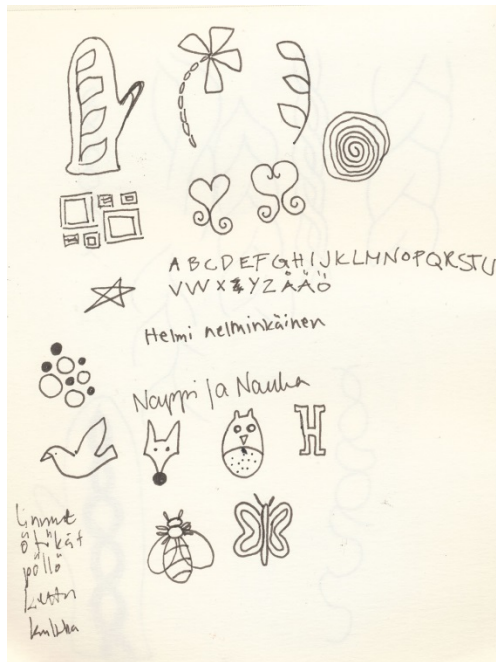 A B C D E F G H I J K L M N O P Q R S T U
V W X Y Z Å Ä Ö
Helmi nelminkäinen
Nappi ja Nauha
H
linnut
ötökät
pöllö
kettu
kukka